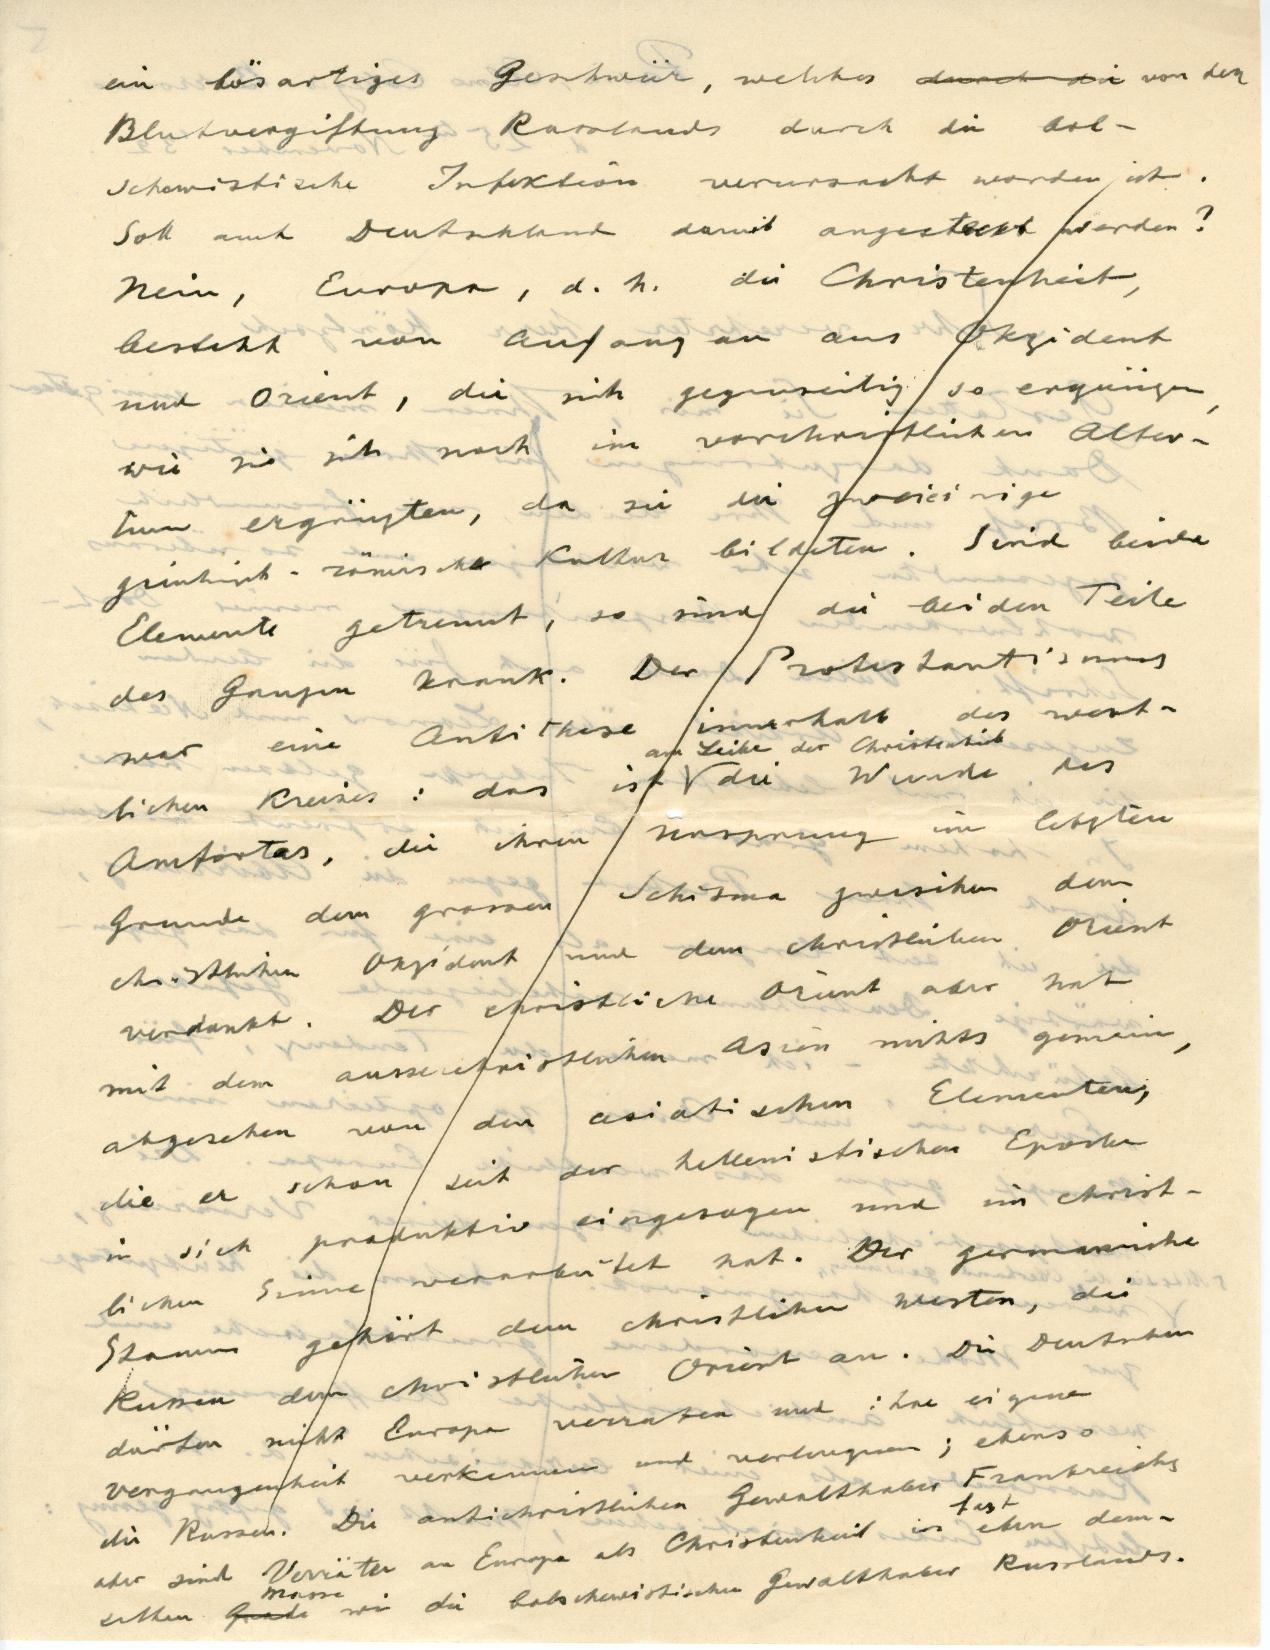 ein bösartiges Geschwür, welches durch die von der
Blutvergiftung Russlands durch die bol-
schewistische Infektion verursacht worden ist.
Soll auch Deutschland damit angesteckt werden?
Nein, Europa, d. h. die Christenheit,
besteht von Anfang an aus Okzident
und Orient, die sich gegenseitig so ergänzen,
wie sie sich noch im vorchristlichen Alter-
tum ergänzten, da sie die zweieinige
griechisch-römische Kultur bildeten. Sind beide
Elemente getrennt, so sind die beiden Teile
des Ganzen krank. Der Protestantismus
war eine Antithese innerhalb des west-
am Leibe der Christenheit
lichen Kreises: das ist die Wunde des
Amfortas, die ihren Ursprung im letzten
Grunde dem grossen Schisma zwischen dem
christlichen Okzident und dem christlichen Orient
verdankt. Der christliche Orient aber hat
mit dem ausserchristlichen Asien nichts gemein,
abgesehen von den asiatischen Elementen,
die er schon seit der hellenistischen Epoche
in sich produktiv eingesogen und im christ-
lichen Sinne verarbeitet hat. Der germanische
Stamm gehört dem christlichen Westen, die
Russen dem christlichen Orient an. Die Deutschen
dürfen nicht Europa verraten und ihre eigene
Vergangenheit verkennen und verleugnen; ebenso
die Russen. Die antichristlichen Gewalthaber Frankreichs
fast
aber sind Verräter an Europa als Christenheit in eben dem-
masse
selben Grade wie die bolschewistischen Gewalthaber Russlands.